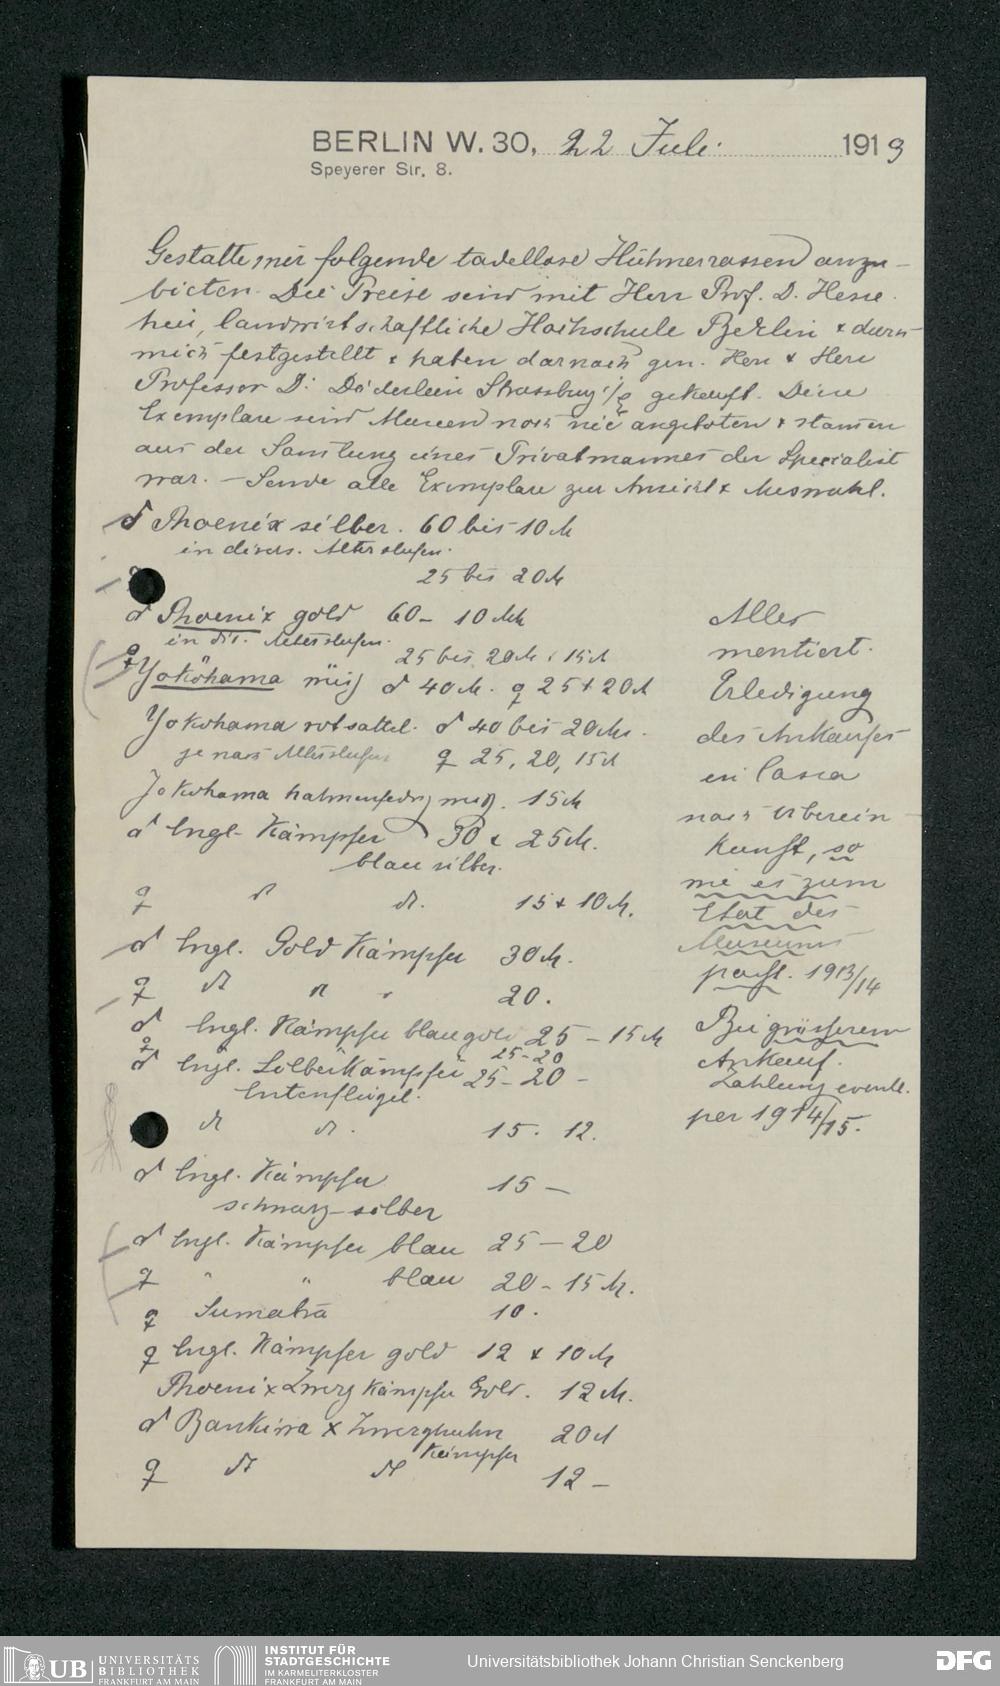 BERLIN W. 30, 22 Juli 1913
Speyerer Str. 8.
Gestatte mir folgende tadellose Hühnerrassen anzu-
bieten. Die Preise sind mit Herr Prof. D. Hesse
hier, landwirtschaftliche Hochschule Berlin & durch
mich festgestellt & haben darnach gen. Herr & Herr
Professor D. Döderlein Strassburg i/E gekauft. Diese
Exemplare sind Museen noch nie angeboten & stammen
aus der Samlung eines Privatmannes der Specialist
war. – Sende alle Exemplare zur Ansicht & Auswahl.
♂ Phoenix silber. 60 bis 10 M
in divers. Altersstufen.
♀ 25 bis 20 M
♂ Phoenix gold 60 – 10 M
in div. Altersstufen.
♀ 25 bis 20 M & 15 M
Yokohama ♂ 40 M. ♀ 25 + 20 M
Yokohama rotsattel. ♂ 40 bis 20 M.
je nach Altersstufen ♀ 25, 20, 15 M
Yokohama hahnenfedrig 15 M
♂ Engl. Kämpfer 30 & 25 M.
blau silber.
♀ dt dt. 15 + 10 M.
♂ Engl. Gold Kämpfer 30 M.
♀ dt " " 20.
♂ Engl. Kämpfer blaugold 25 – 15 M
♀ 25-20
♂ Engl. Silber Kämpfer 25 – 20 –
Entenflügel.
dt dt. 15. 12.
♂ Engl. Kämpfer 15 –
schwarz-silber
♂ Engl. Kämpfer blau 25 – 20
♀ " " blau 20 – 15 M.
♀ Sumatra 10.
♀ Engl. Kämpfer gold 12 & 10 M
Phoenix Zwerg Kämpfer Gold. 12 M.
♂ Bankiva x Zwerghuhn 20 M
Kämpfer
♀ dt dt 12 –
Alles
mentiert.
Erledigung
des Ankaufes
in Cassa
nach Überein-
kunft, so
wie es zum
Etat des
Museums
passt. 1913/14
Bei grösserem
Ankauf.
Zahlung eventl.
per 1914/15.
UB UNIVERSITÄTS
BIBLIOTHEK
FRANKFURT AM MAIN
INSTITUT FÜR
STADTGESCHICHTE
IM KARMELITERKLOSTER
FRANKFURT AM MAIN
Universitätsbibliothek Johann Christian Senckenberg
DFG